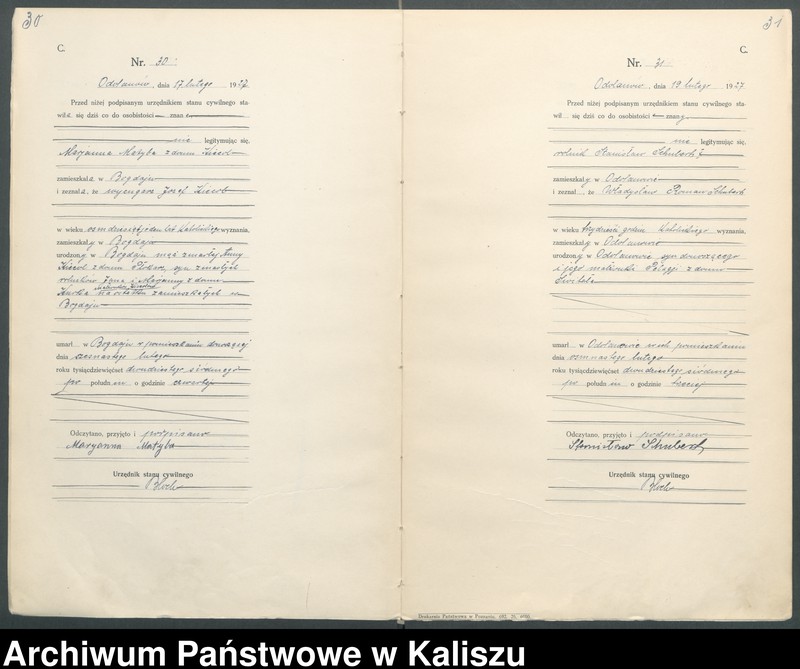 30
C.
Nr. 30.
Odolanów, dnia 17 lutego 1927
Przed niżej podpisanym urzędnikiem stanu cywilnego sta-
wił a się dziś co do osobistości — zna na
nie legitymując się.
Maryanna Matyba z domu
zamieszkał a w Bogdaju
i zeznał a, że Józef
w wieku osmdziesiąt jeden lat katolickiego wyznania,
zamieszkał y w Bogdaju
urodzon y w Bogdaju mąż zmarłej Anny
z domu syn zmarłych
rolników Jana i Maryanny z domu
na ostatku zamieszkałych w
Bogdaju
umarł w Bogdaju w pomieszkaniu donoszącej
dnia szesnastego lutego
roku tysiącdziewięćset dwudziestego siódmego
po południu o godzinie czwartej
Odczytano, przyjęto i podpisano
Maryanna Matyba
Urzędnik stanu cywilnego
31
C.
Nr. 31
Odolanów, dnia 19 lutego 1927
Przed niżej podpisanym urzędnikiem stanu cywilnego sta-
wił się dziś co do osobistości — znany
nie legitymując się.
rolnik Stanisław Schubert
zamieszkał y w Odolanowie
i zeznał, że Władysław Roman Schubert
w wieku katolickiego wyznania,
zamieszkał y w Odolanowie
urodzon y w Odolanowie syn donoszącego
i jego małżonki Pelagji z domu
umarł w Odolanowie w pomieszkaniu
dnia osmnastego lutego
roku tysiącdziewięćset dwudziestego siódmego
po południu o godzinie trzeciej
Odczytano, przyjęto i podpisano
Stanisław Schubert
Urzędnik stanu cywilnego
Drukarnia Państwowa w Poznaniu.
Archiwum Państwowe w Kaliszu